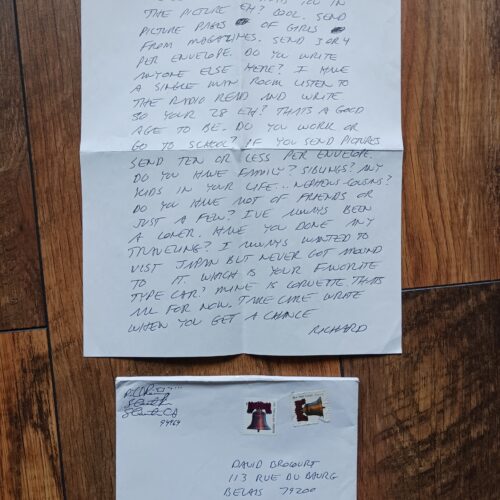 YOU IN
THE PICTURE EH? COOL. SEND
PICTURE PAGES OF GIRLS
FROM MAGAZINES. SEND 3 OR 4
PER ENVELOPE. DO YOU WRITE
ANYONE ELSE HERE? I HAVE
A SINGLE MAN ROOM LISTEN TO
THE RADIO READ AND WRITE
SO YOUR 28 EH? THATS A GOOD
AGE TO BE. DO YOU WORK OR
GO TO SCHOOL? IF YOU SEND PICTURES
SEND TEN OR LESS PER ENVELOPE.
DO YOU HAVE FAMILY? SIBLINGS? ANY
KIDS IN YOUR LIFE... NEPHEWS-COUSINS?
DO YOU HAVE ALOT OF FRIENDS OR
JUST A FEW? I'VE ALWAYS BEEN
A LONER. HAVE YOU DONE ANY
TRAVELING? I ALWAYS WANTED TO
VISIT JAPAN BUT NEVER GOT AROUND
TO IT. WHICH IS YOUR FAVORITE
TYPE CAR? MINE IS CORVETTE. THATS
ALL FOR NOW. TAKE CARE WRITE
WHEN YOU GET A CHANCE
RICHARD
CA
DAVID
113 RUE DU
79200